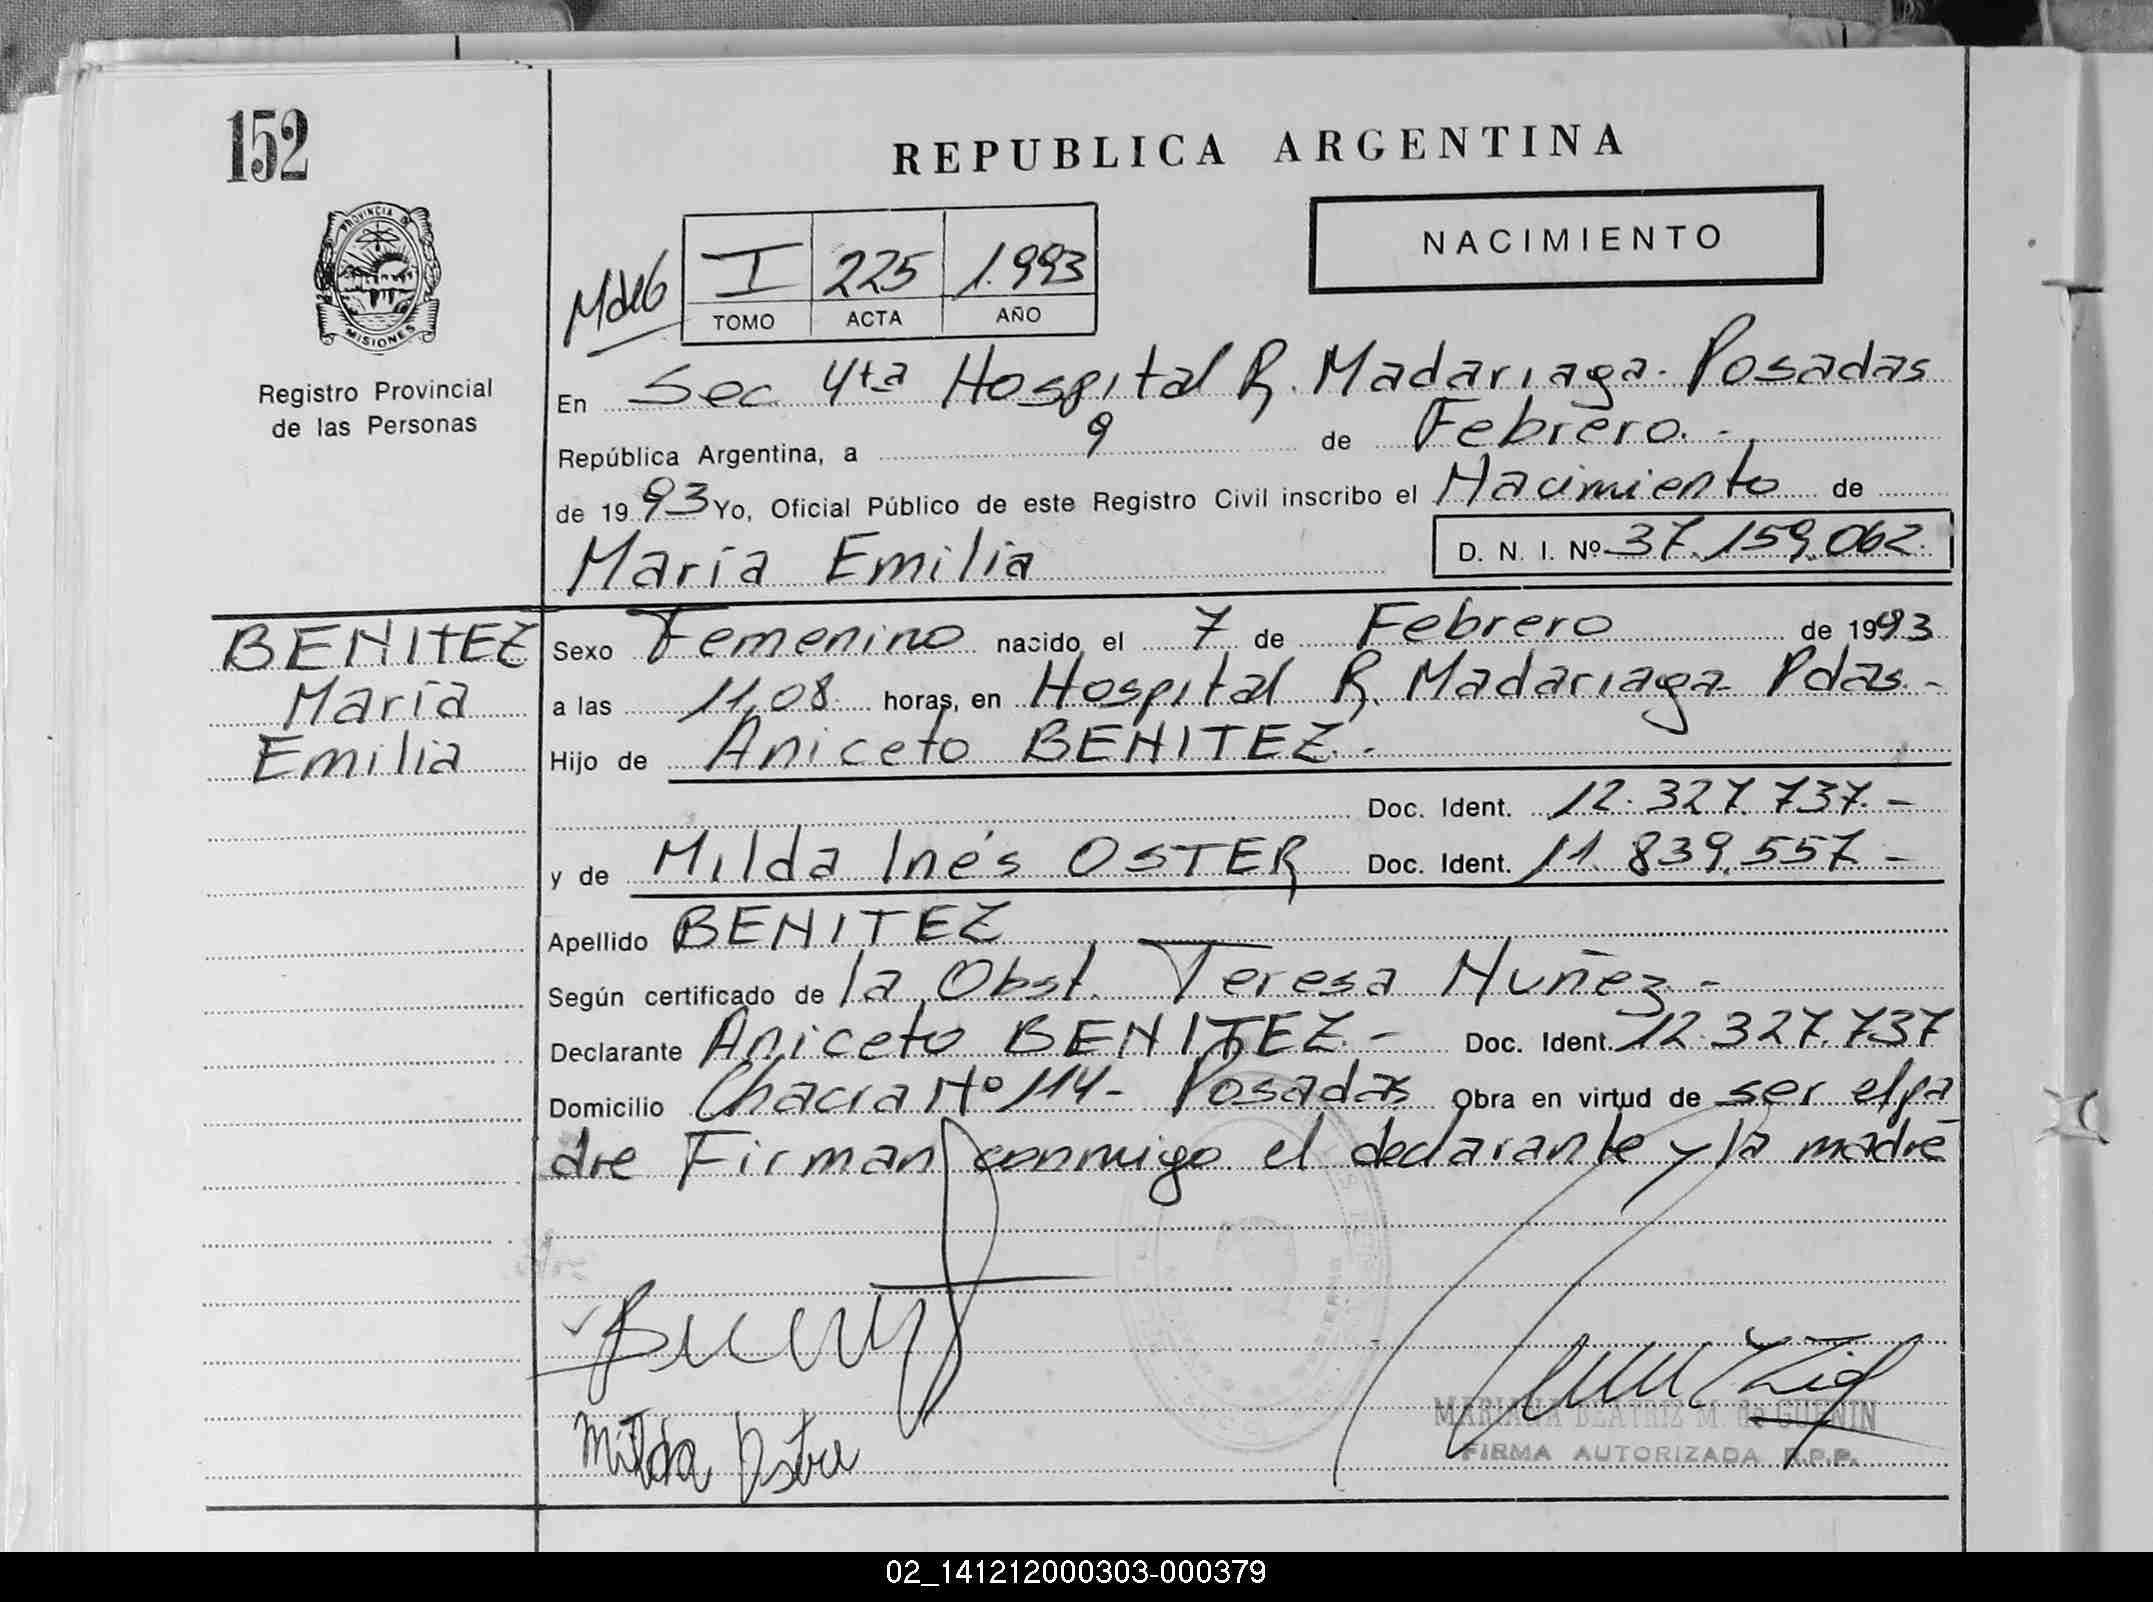 152
REPUBLICA ARGENTINA
PROVINCIA DE
MISIONES
Registro Provincial
de las Personas
NACIMIENTO
I 225 1.993
TOMO ACTA AÑO
En Sec 4ta Hospital R. Madariaga. Posadas
República Argentina, a 9 de Febrero.-
de 1993 Yo, Oficial Público de este Registro Civil inscribo el Nacimiento de
María Emilia D. N. I. Nº 37.159.062.
BENITEZ
María
Emilia
Sexo Femenino nacido el 7 de Febrero de 1993
a las 11,08 horas, en Hospital R. Madariaga- Pdas.-
Hijo de Aniceto BENITEZ.-
Doc. Ident. 12.327.737.-
y de Milda Inés OSTER Doc. Ident. 11.839.557-
Apellido BENITEZ
Según certificado de la Obst. Teresa Nuñez-
Declarante Aniceto BENITEZ.- Doc. Ident. 12.327.737
Domicilio Chacra Nº 114- Posadas Obra en virtud de ser el pa
dre Firman conmigo el declarante y la madre
Milda Oster
MARIANA BEATRIZ M. de GUENIN
FIRMA AUTORIZADA R.P.P.
02_141212000303-000379